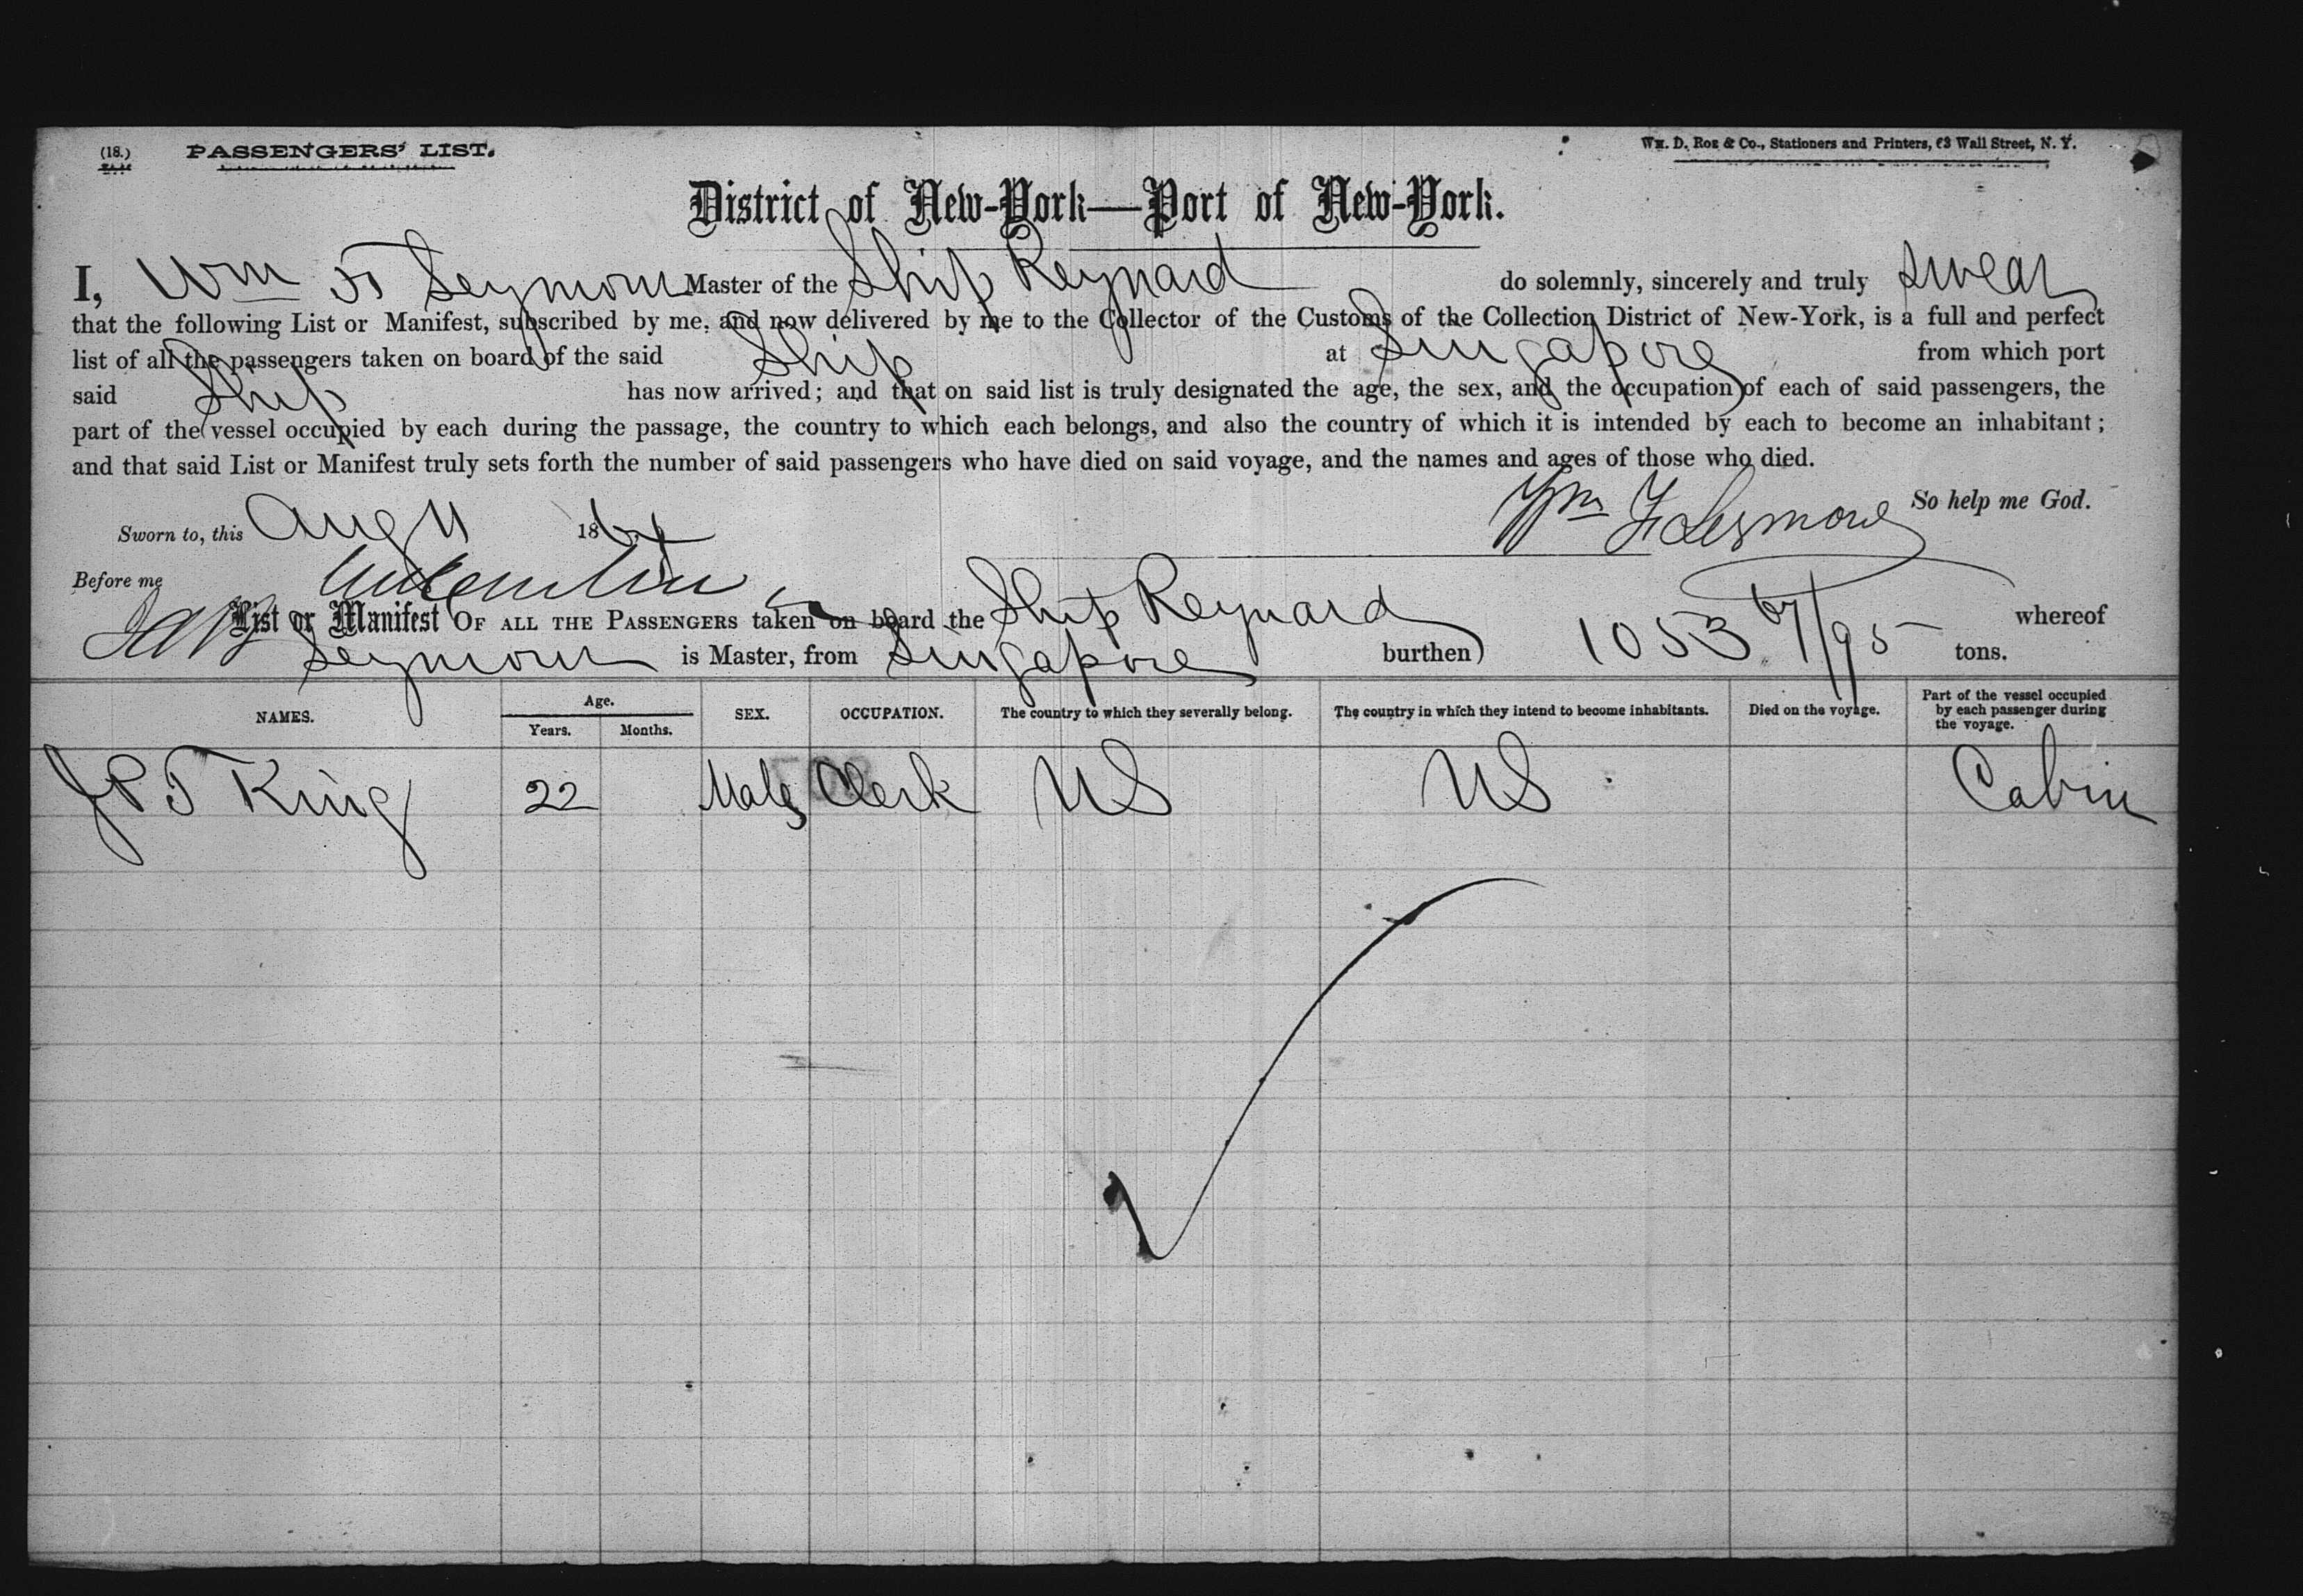 (18.) PASSENGERS' LIST. Wm. D. Roe & Co., Stationers and Printers, 63 Wall Street, N. Y.
District of New-York—Port of New-York.
I, Wm F Seymour Master of the Ship Reynard do solemnly, sincerely and truly swear
that the following List or Manifest, subscribed by me, and now delivered by me to the Collector of the Customs of the Collection District of New-York, is a full and perfect
list of all the passengers taken on board of the said Ship at Singapore from which port
said Ship has now arrived; and that on said list is truly designated the age, the sex, and the occupation of each of said passengers, the
part of the vessel occupied by each during the passage, the country to which each belongs, and also the country of which it is intended by each to become an inhabitant;
and that said List or Manifest truly sets forth the number of said passengers who have died on said voyage, and the names and ages of those who died.
So help me God.
Wm F Seymour
Sworn to, this Aug 11 186
Before me
List or Manifest OF ALL THE PASSENGERS taken on board the Ship Reynard whereof
Seymour is Master, from Singapore burthen 1053 67/95 tons.
NAMES. Age. Years. Months. SEX. OCCUPATION. The country to which they severally belong. The country in which they intend to become inhabitants. Died on the voyage. Part of the vessel occupied by each passenger during the voyage.
J P T King 22 Male Clerk US US Cabin